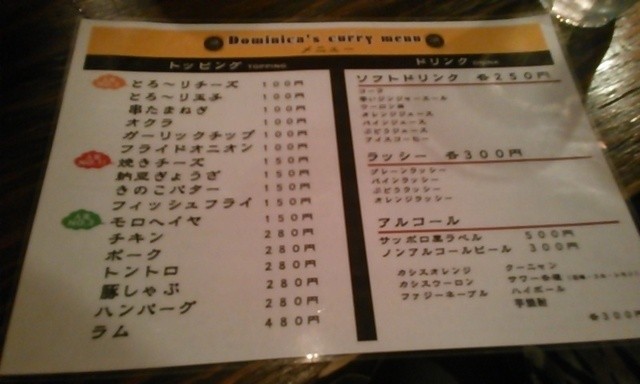 Dominica's curry menu
メニュー
トッピング TOPPING
とろ〜りチーズ 100円
とろ〜り玉子 100円
串たまねぎ 100円
オクラ 100円
ガーリックチップ 100円
フライドオニオン 100円
焼きチーズ 150円
納豆ぎょうざ 150円
きのこバター 150円
フィッシュフライ 150円
モロヘイヤ 150円
チキン 280円
ポーク 280円
トントロ 280円
豚しゃぶ 280円
ハンバーグ 280円
ラム 480円
ドリンク DRINK
ソフトドリンク 各250円
コーラ
辛いジンジャーエール
ウーロン茶
オレンジジュース
パインジュース
ぶどうジュース
アイスコーヒー
ラッシー 各300円
プレーンラッシー
パインラッシー
ぶどうラッシー
オレンジラッシー
アルコール
サッポロ黒ラベル 500円
ノンアルコールビール 300円
カシスオレンジ
カシスウーロン
ファジーネーブル
サワー各種
ハイボール
芋焼酎
各300円